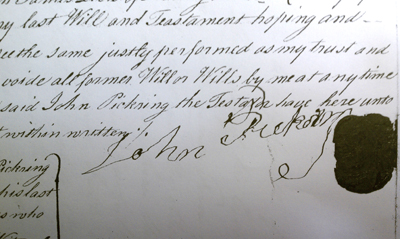 my last Will and Teastament hoping and
the same justly performed as my trust and
voide all former Will or Wills by me at any time
said John Pickring the Testator have here unto
t within written
John Pickring
Pickring
his last
s who